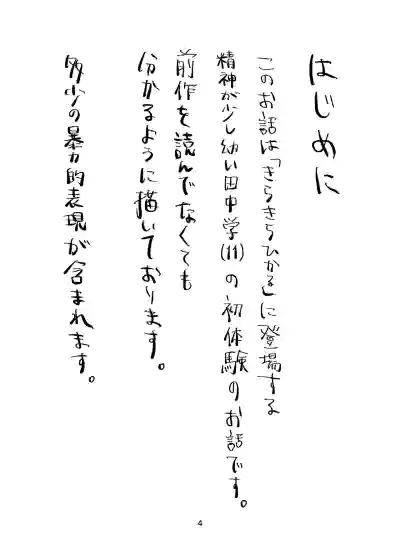 はじめに
このお話は「きらきらひかる」に登場する
精神が少し幼い田中学(11)の初体験のお話です。
前作を読んでなくても
分かるように描いております。
多少の暴力的表現が含まれます。
4